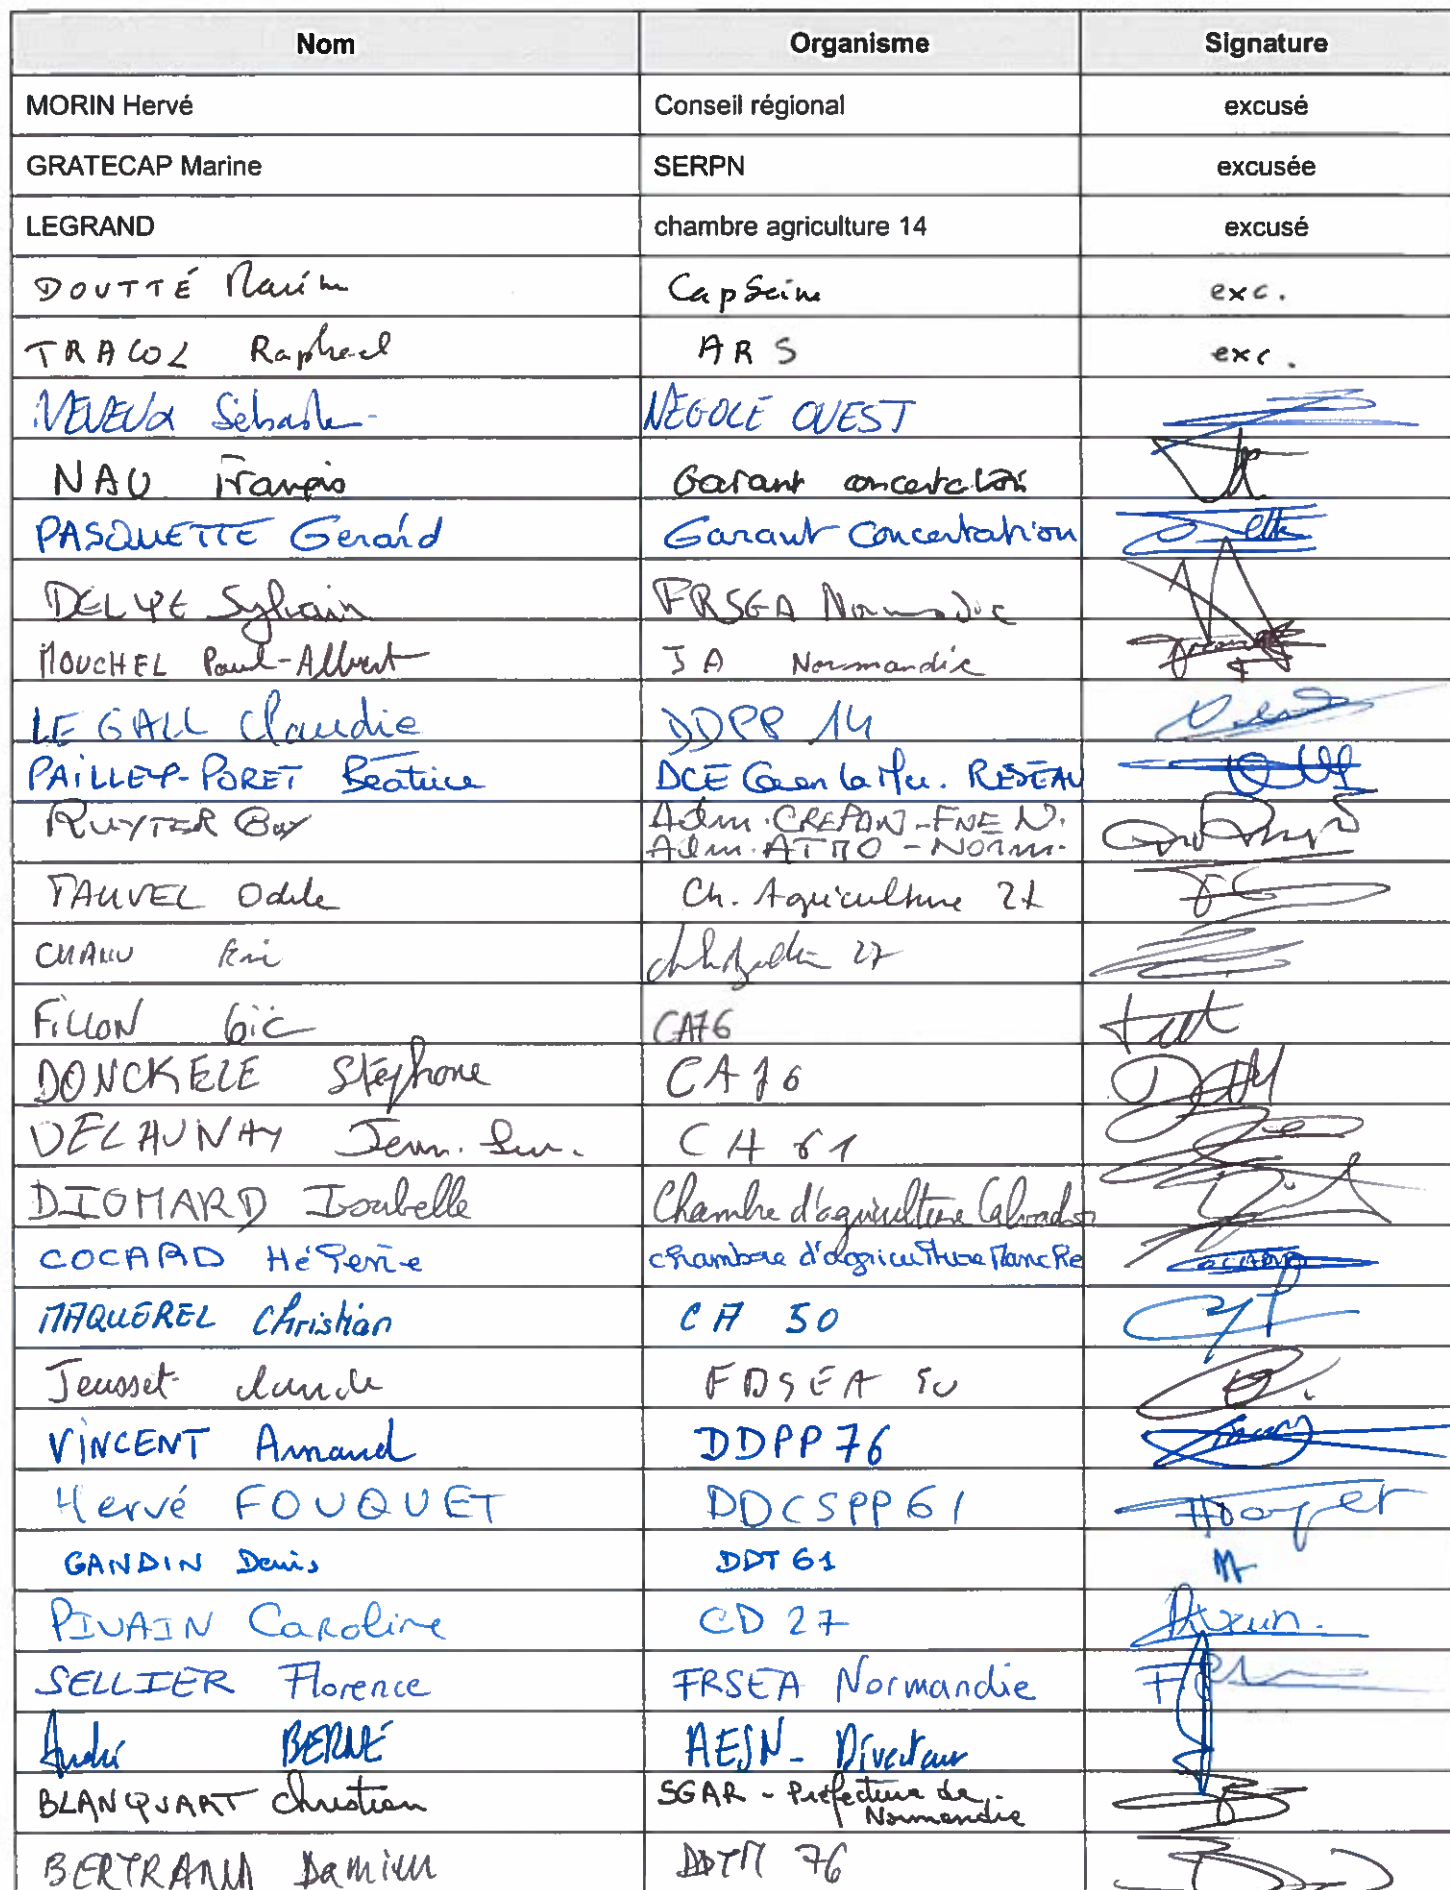 Nom Organisme Signature
MORIN Hervé Conseil régional excusé
GRATECAP Marine SERPN excusée
LEGRAND chambre agriculture 14 excusé
DOUTTÉ CapSeine exc.
TRACOL Raphael ARS exc.
NÉGOCE OUEST
NAU François Garant concertation
PASQUETTE Gérard Garant Concertation
Sylvain FRSEA Normandie
MOUCHEL Paul-Albert JA Normandie
LE GALL Claudie DDPP 14
PAILLEY-PORET Béatrice DCE Caen la Mer. RESEAU
RUYTER Guy Adm. CREPAN-FNE N.
Adm. ATMO - Norm.
FAUVEL Odile Ch. Agriculture 27
CHANU 27
FILLON CA76
DONCKELE Stéphane CA76
DELAUNAY Jean. CA 61
DIOMARD Isabelle Chambre d'agriculture Calvados
COCARD Hélène chambre d'agriculture Manche
MAQUEREL Christian CA 50
Jeusset claude FDSEA 50
VINCENT Arnaud DDPP 76
Hervé FOUQUET DDCSPP 61
GANDIN Denis DDT 61
PIVAIN Caroline CD 27
SELLIER Florence FRSEA Normandie
André BERNE AESN - Directeur
BLANQUART Christian SGAR - Préfecture de
Normandie
BERTRAND Damien DDTM 76